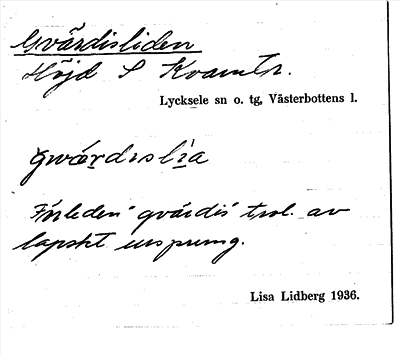 Gvärdisliden
Höjd S Kvarntr.
Lycksele sn o. tg, Västerbottens l.
gwærdɩslɩa
Förleden "gvärdis" trol. av
lapskt ursprung.
Lisa Lidberg 1936.